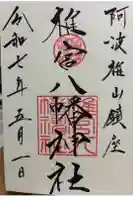 阿波雄山鎮座
雄宮八幡神社
令和七年五月一日